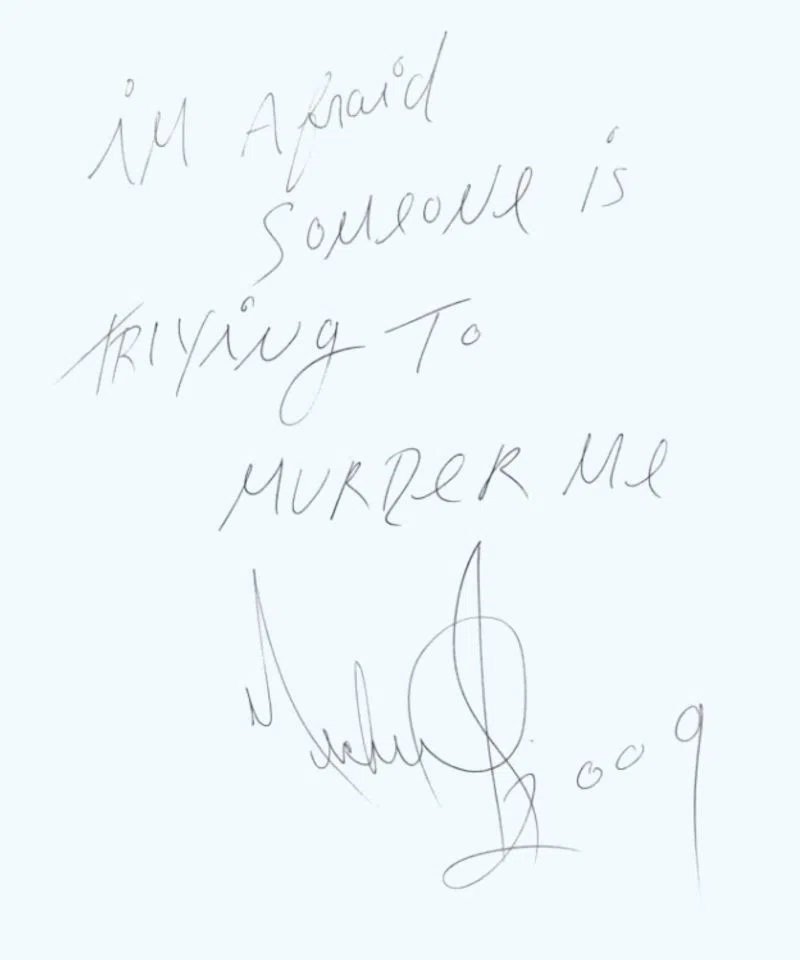 iM Afraid
SOMeONe is
TRIYiNg TO
MURDeR Me
Michael 2009